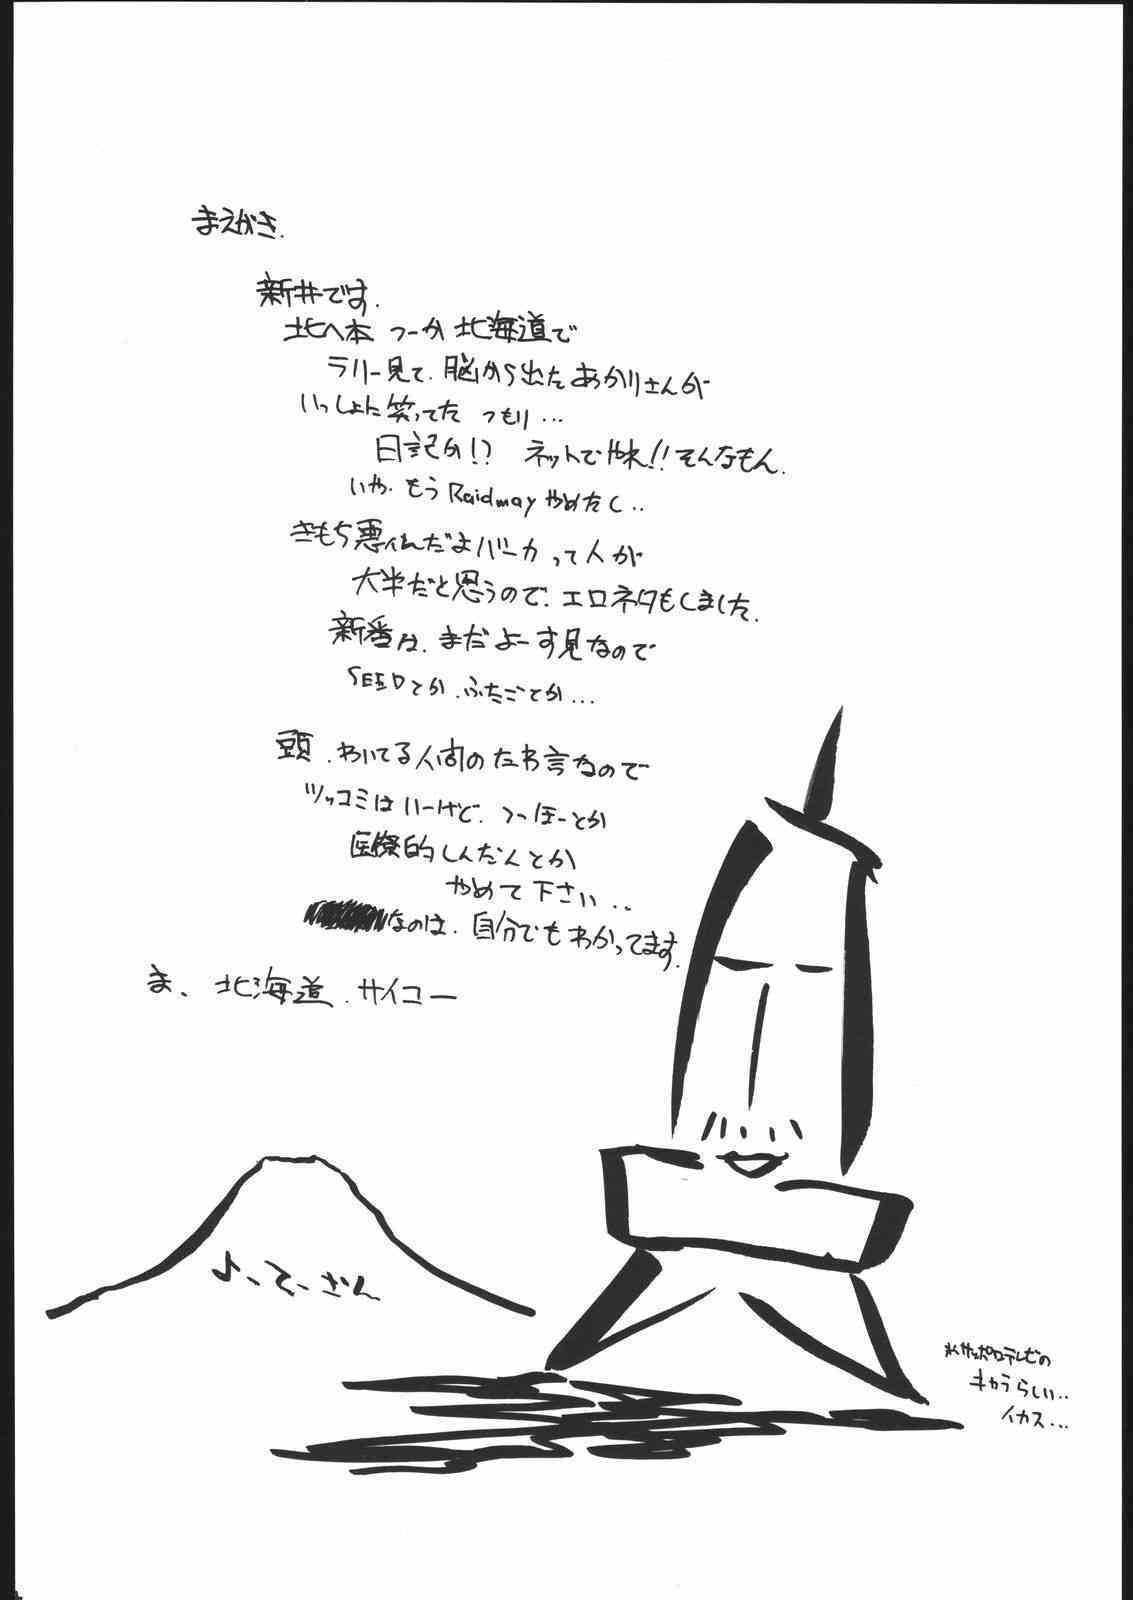 まえがき.
新井です.
北へ本 つーか 北海道で
ラリー見て.脳から出たあかりさんが
いっしょに笑ってた つもり…
日記か!? ネットでやれ!!そんなもん.
いや.もうRaidmayやめたし‥
きもち悪いんだよバーカって人が
大半だと思うので.エロネタもしました.
新番は.まだよーす見なので
SEEDとか.ふたごとか…
頭.わいてる人間のたわ言なので
ツッコミはいーけど.つーほーとか
医療的しんだんとか
やめて下さい‥
なのは.自分でもわかってます.
ま、北海道.サイコー
よーてーさん
※サッポロテレビの
キャラらしい‥
イカス…